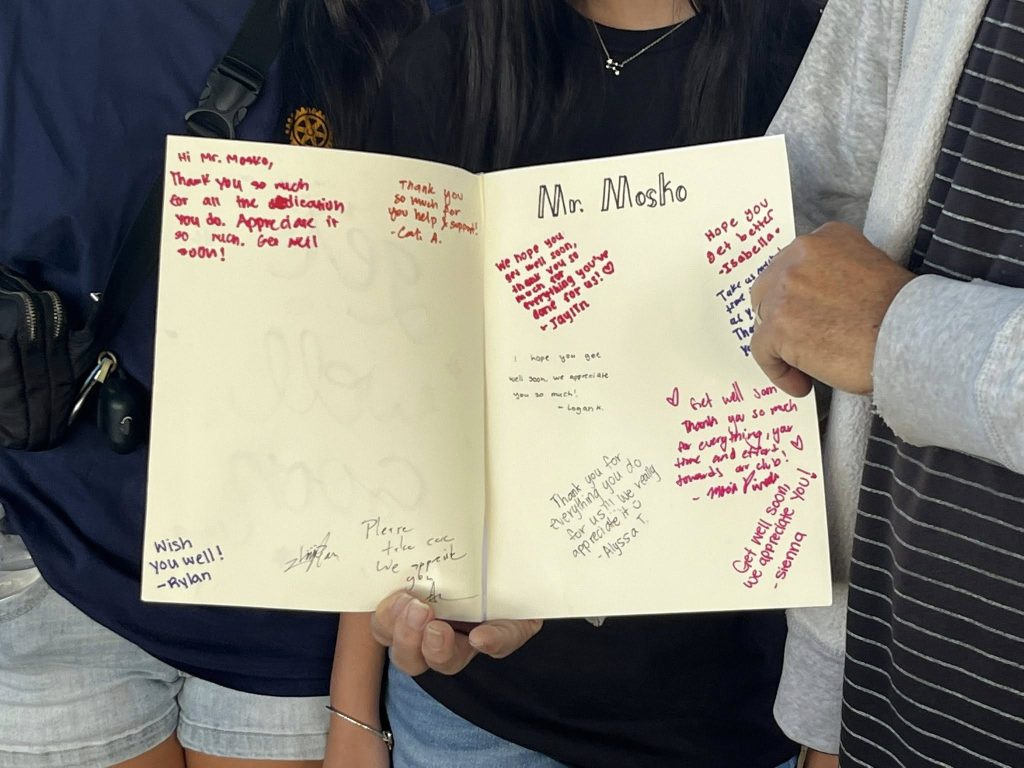 Hi Mr. Mosko,
Thank you so much
for all the dedication
you do. Appreciate it
so much. Get well
soon!
Thank you
so much for
you help & support!
- Cati A.
Wish
you well!
-Rylan
Please
take care
we appreciate
you
Mr. Mosko
We hope you
get well soon,
thank you so
much for
everything you've
done for us! ♡
- Jaylin
Hope you
get better
-Isabella-
Take as much
time
as y
Tha
I hope you get
well soon, we appreciate
you so much!
- Logan K.
♡ Get well soon
Thank you so much
for everything, your
time and effort ♡
towards our club!
Thank you for
everything you do
for us!!! we really
appreciate it
-Alyssa T.
Get well soon,
we appreciate you!
- sienna